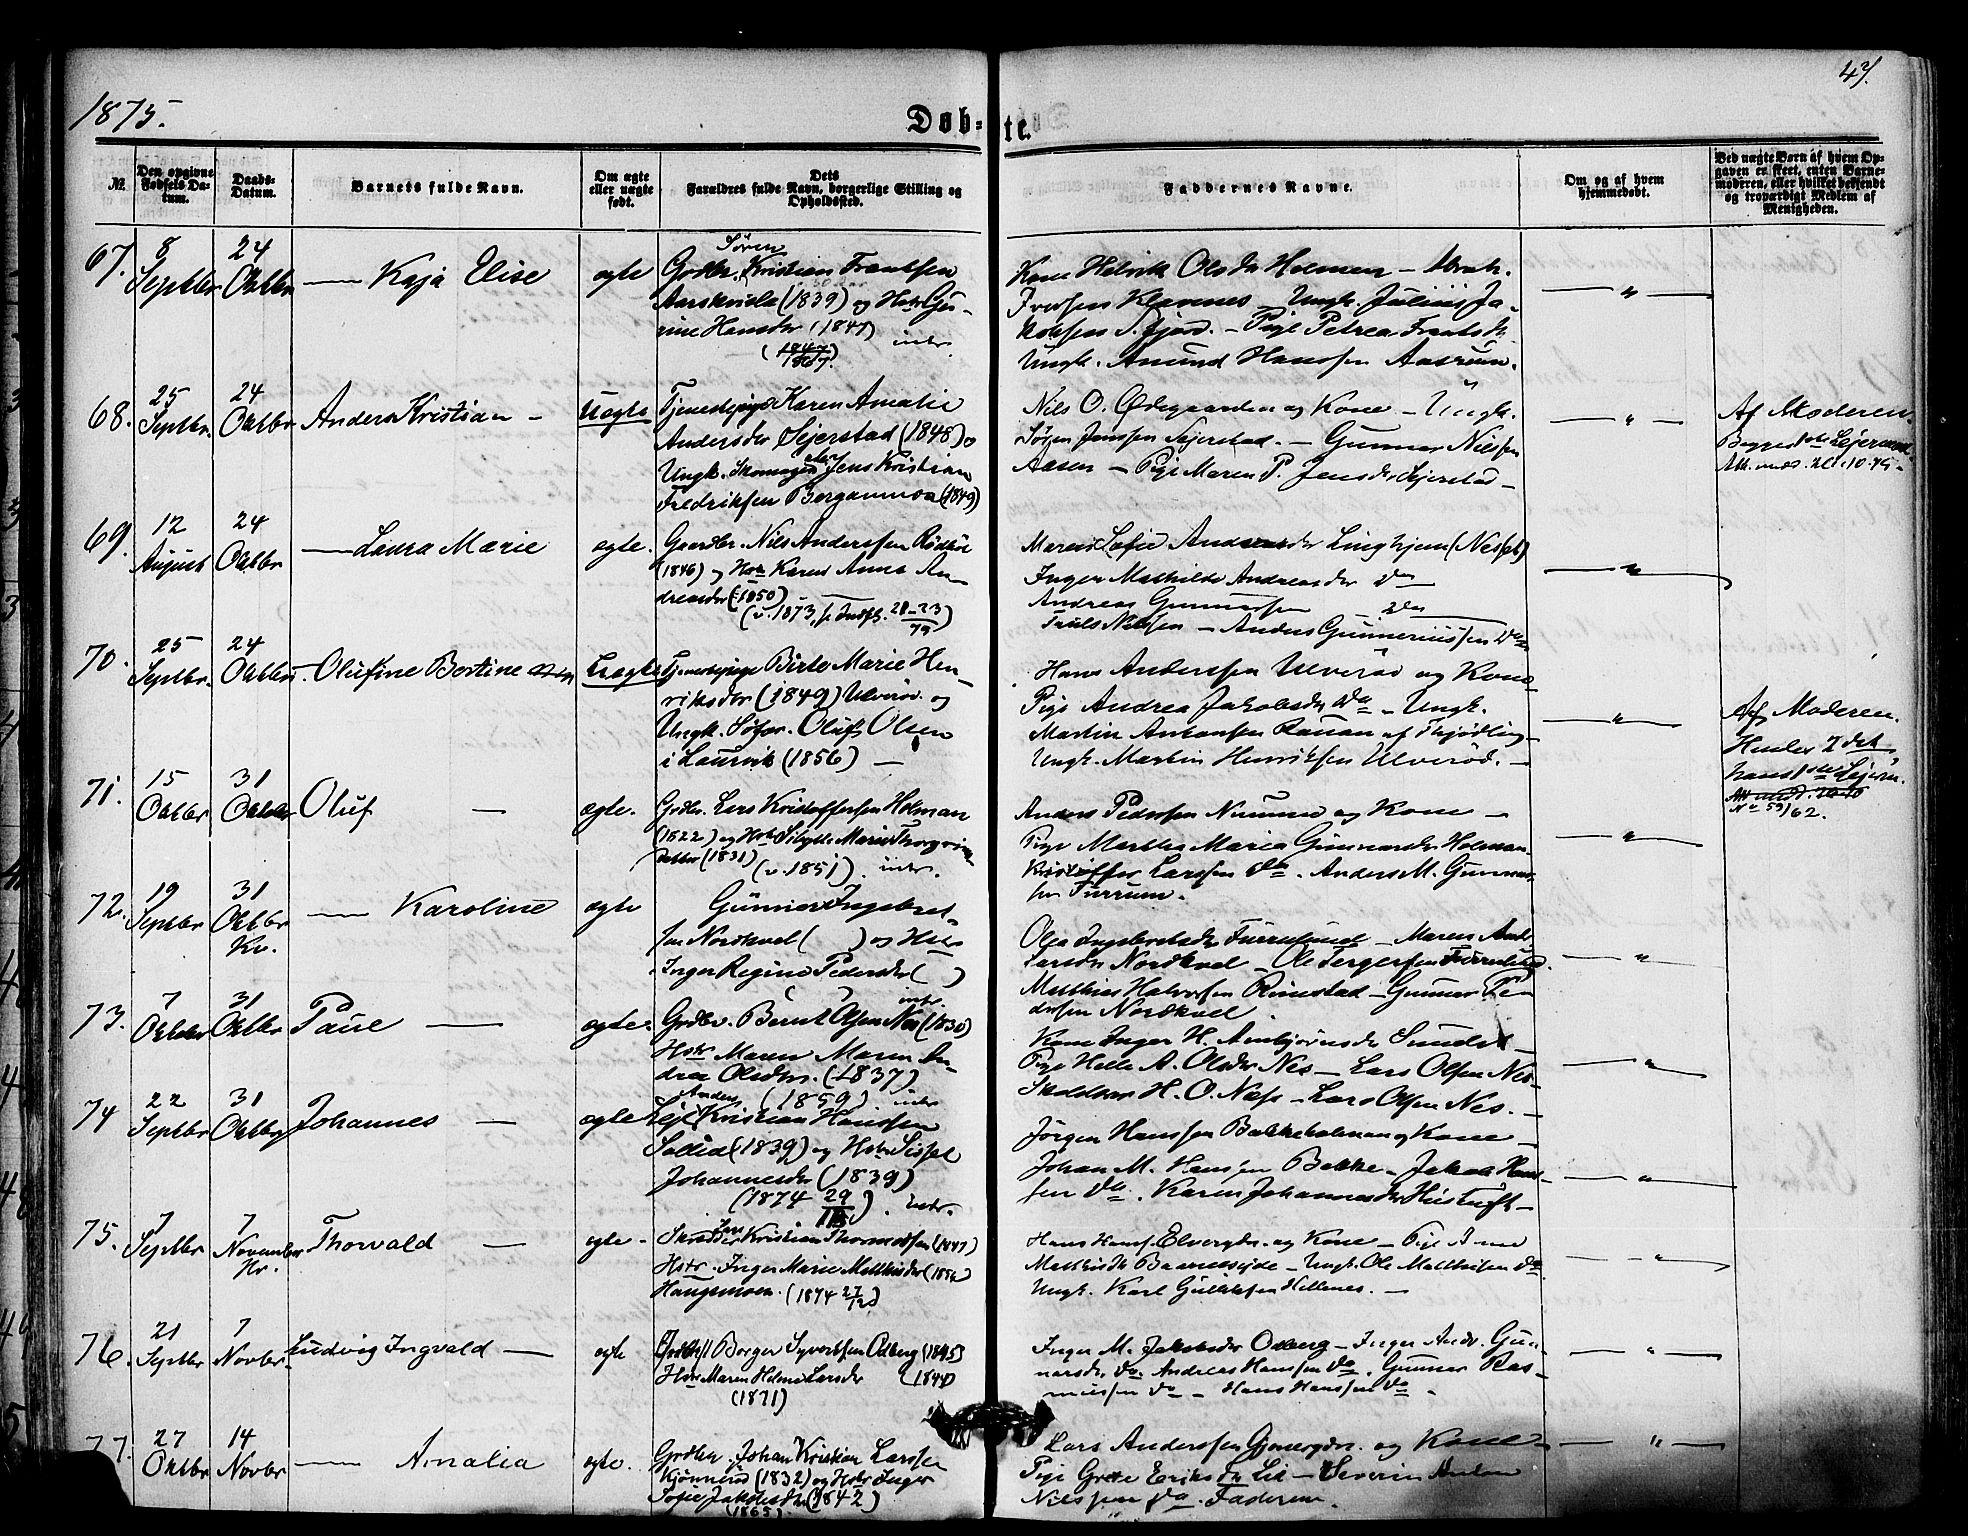 1875.
47.
Døb-te.
№
Den opgivne Fødsels Datum.
Daabs-Datum.
Barnets fulde Navn.
Om ægte eller uægte født.
Dets Forældres fulde Navn, borgerlige Stilling og Opholdssted.
Faddernes Navne.
Om og af hvem hjemmedøbt.
Ved uægte Børn af hvem Opgaven er skeet, enten Barnemoderen, eller hvilket bekjendt og troværdigt Medlem af Menigheden.
67.
8 Septbr
24 Oktbr
Kaja Elise
ægte
Søren
Grdbr. Kristian Frantsen
Aarskvisla (1839) og Hstr Gu-
rine Hansdr (1847)
Kone Helvik Olsdr Holmen –
Iversen Klavenes – Ungk. Julius Ja-
kobsen S. Fjord. – Pige Petrea Frantsdr
Ungk. Amund Hanssen Aasrum.
68.
25 Septbr.
24 Oktbr
Anders Kristian –
Uægte
Tjenestepige Karen Amalie
Andersdr Sejerstad (1848) o
Ungk. Skomager Jens Kristian
Fredriksen Bergan (1849)
Nils O. Ødegaarden og Kone – Ungk.
Sørgen Jenssen Sejerstad. – Gunnar Nilssen
Aasen – Pige Maren P. Jensdr Sejerstad –
Af Moderen.
Begges 1ste Lejermaal
69.
12 August
24 Oktbr
Laura Marie
ægte.
Gaardbr. Nils Anderssen Rødbøl
(1846) og Hstr Karen Anna An-
dreasdr (1850)
Maren Sofie Andreasdr Linghjem
Inger Mathilde Andreasdr do
Andreas Gunnarssen do
Truls Nilssen – Anders Gunneriussen do
70.
25 Septbr.
24 Oktbr
Olufine Bertine
Uægte
Tjenestepige Birte Marie Hen-
riksdr (1849) Ulverød og
Ungk. Søfar. Oluf Olsen
i Laurvik (1856) –
Hans Anderssen Ulverød og Kone
Pige Andrea Jakobsdr do – Ungk.
Martin Antonsen Rauan af Thjødling –
Ungk. Martin Henriksen Ulverød. –
Af Moderen.
Hendes 2det,
hans 1ste Lejerm.
No 59/62.
71.
15 Oktbr
31 Oktbr
Oluf –
ægte.
Grdbr. Lars Kristoffersen Holman
(1822) og Hstr Sibylle Marie
datter (1831)
(v. 1851). intr.
Anders Pederssen Numme og Kone –
Pige Marthe Maria Gunnarsdr Holman
Kristoffer Larssen do. Anders M. Gunnars-
sen Furrum.
72.
19 Septbr
31 Oktbr
Kv.
Karoline
ægte
Gunnar Ingebret-
sen Nordkvel ( ) og Hstr
Inger Regine Pedersdr ( )
Olea Ingebretsdr Furrelund – Maren And.
Larsdr Nordkvel – Ole Tergersen Furrelund.
Mathias Halvorsen Rimstad – Gunnar Pe-
dersen Nordkvel.
73.
7 Oktbr
31 Oktbr
Paul –
ægte.
intr.
Grdbr. Bernt Olsen Nes (1830)
Hstr Maren An-
drea Olsdtr. (1837)
(1859) intr
Kone Inger H. Arnbjørnsdr Sundet –
Pige Helle A. Olsdr Nes – Lars Olsen Nes –
Skoldar H. O. Næss – Lars Olsen Nes. –
74
22 Septbr
31 Oktbr
Johannes –
ægte
Anders
Lejl Kristian Hanssen
Sollid (1839) og Hstr Sissel
Johannesdr (1839)
(1874 29/11). intr.
Jørgen Hanssen Bakkeholman og Kone –
Johan M. Hanssen Bakke – Jakob Hans-
sen do. Karen Johannesdr Himstuft –
75.
7 Septbr
7 November
Kr.
Thorvald –
ægte –
Lars
Skrædder Kristian Thomassen (1847)
Hstr. Inger Marie Mathisdr (1852)
Haugsmoen. (1874 27/12)
Hans Hans. Elvergdn. og Kone – Pige Anne
Mathisdr – Ungk. Ole Mathisen do
Ungk. Karl Gulliksen Hellenes. –
76.
21 Septbr
7 Novbr.
Ludvig Ingvald –
ægte
Grdbr Borger Syvertsen Odberg (1845)
Hstr Maren Helene Larsdr (1844)
(1871)
Inger M. Jakobsdr Odberg – Inger Andr. Gun-
narsdr. do. Andreas Hanssen do. Gunnar Ras-
mussen do – Hans Hanssen do –
77.
27 Oktbr
14 Novbr.
Amalia
ægte.
Grdbr. Johan Kristian Larssen
Kjønnerød (1832) og Hstr Inger
Sofie Jakobsdr (1842)
(1865).
Lars Anderssen og Kone –
Pige Grete Eriksdr Lie – Severin Anton
Nilssen do. Faderen.